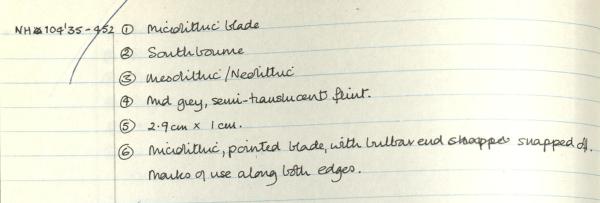 NH 104'35-452 ① Microlithic blade
② Southbourne
③ Mesolithic/Neolithic
④ Mid grey, semi-translucent flint.
⑤ 2.9cm x 1cm.
⑥ Microlithic, pointed blade, with bulbar end snapped off.
Marks of use along both edges.